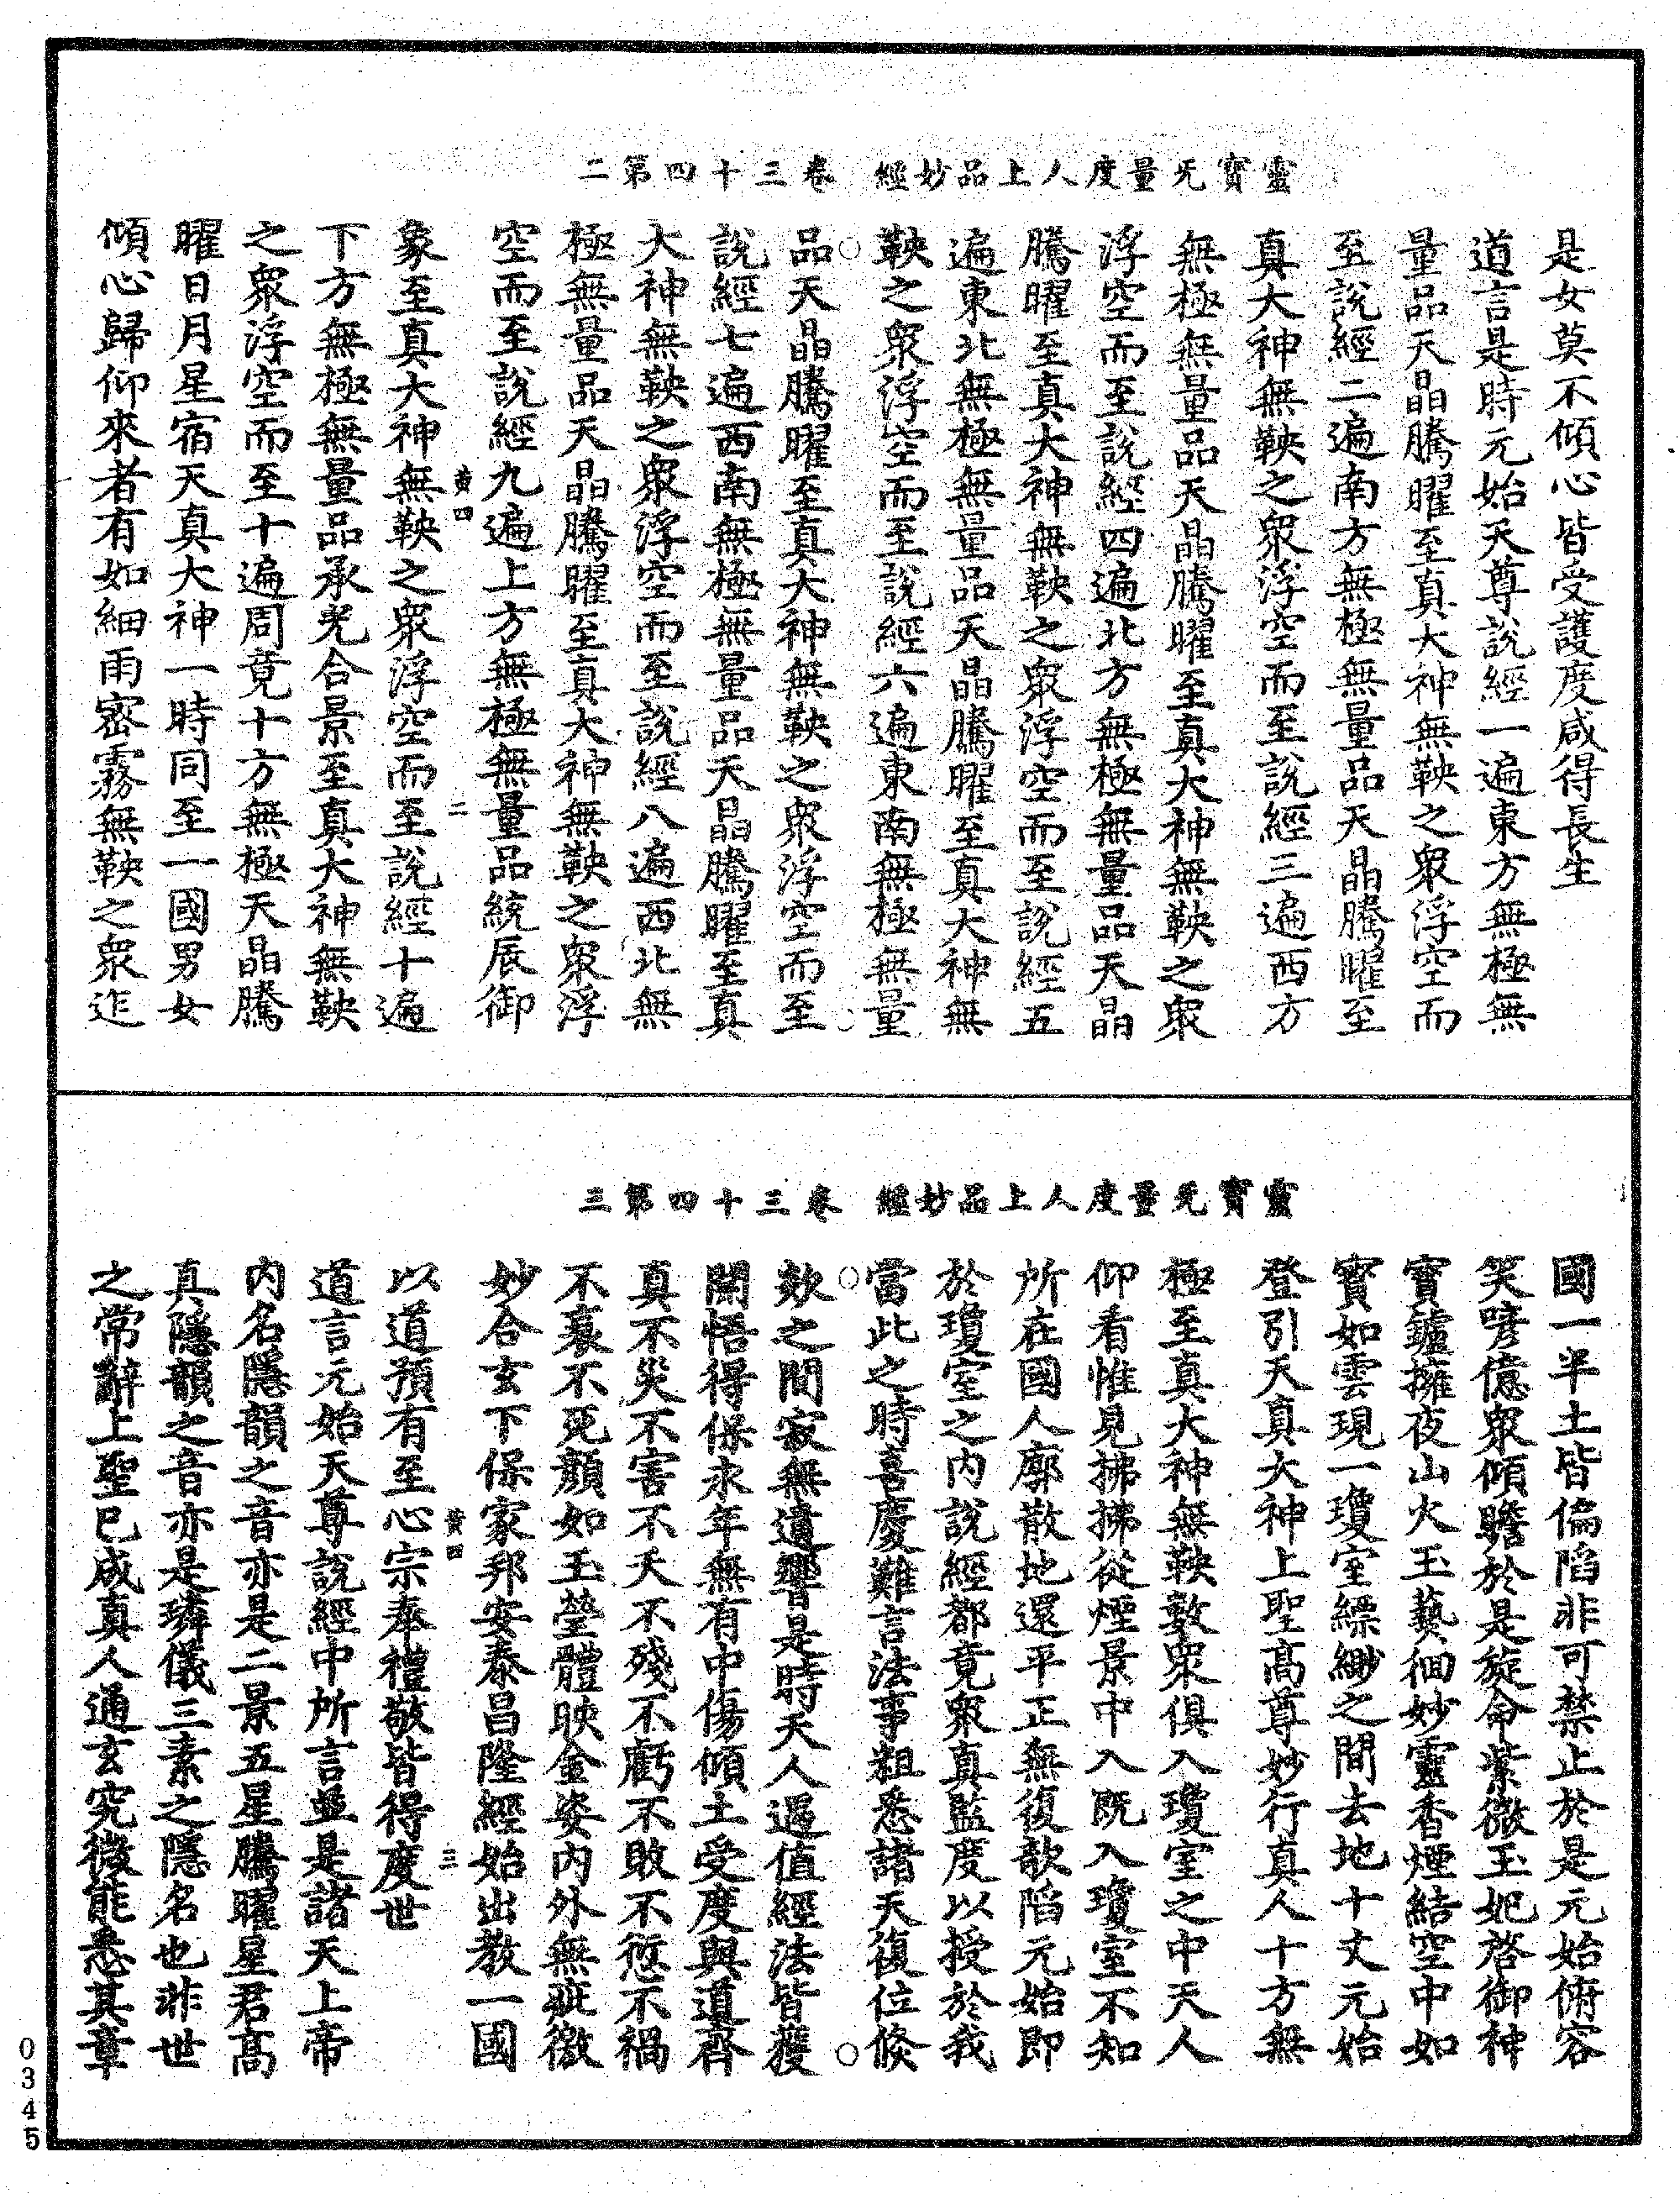 靈寶旡量度人上品妙經　卷三十四第二
是女莫不傾心皆受護度咸得長生
道言是時元始天尊說經一遍東方無極無
量品天晶騰曜至真大神無鞅之眾浮空而
至說經二遍南方無極無量品天晶騰曜至
真大神無鞅之眾浮空而至說經三遍西方
無極無量品天晶騰曜至真大神無鞅之眾
浮空而至說經四遍北方無極無量品天晶
騰曜至真大神無鞅之眾浮空而至說經五
遍東北無極無量品天晶騰曜至真大神無
鞅之眾浮空而至說經六遍東南無極無量
品天晶騰曜至真大神無鞅之眾浮空而至
說經七遍西南無極無量品天晶騰曜至真
大神無鞅之眾浮空而至說經八遍西北無
極無量品天晶騰曜至真大神無鞅之眾浮
空而至說經九遍上方無極無量品統辰御
黃四　二
象至真大神無鞅之眾浮空而至說經十遍
下方無極無量品承光合景至真大神無鞅
之眾浮空而至十遍周竟十方無極天晶騰
曜日月星宿天真大神一時同至一國男女
傾心歸仰來者有如細雨密霧無鞅之眾迮
靈寶旡量度人上品妙經　卷三十四第三
國一半土皆偏陷非可禁止於是元始俯容
笑唴億眾傾瞻於是旋命紫微玉妃啓御神
寶鑪擁夜山火玉爇徊妙靈香煙結空中如
寶如雲現一瓊室縹緲之間去地十丈元始
登引天真大神上聖高尊妙行真人十方無
極至真大神無鞅數眾俱入瓊室之中天人
仰看惟見拂拂從煙景中入既入瓊室不知
所在國人廓散地還平正無復欹陷元始即
於瓊室之內說經都竟眾真監度以授於我
當此之時喜慶難言法事粗悉諸天復位倏
欻之間寂無遺響是時天人遇值經法皆獲
開悟得保永年無有中傷傾土受度與道齊
真不災不害不夭不殘不虧不敗不愆不禍
不衰不死顏如玉瑩體映金姿內外無疵徹
妙合玄下保家邦安泰昌隆經始出教一國
黃四　三
以道預有至心宗奉禮敬皆得度世
道言元始天尊說經中所言並是諸天上帝
內名隱韻之音亦是二景五星騰曜星君高
真隱韻之音亦是璘儀三素之隱名也非世
之常辭上聖已成真人通玄究微能悉其章
0345